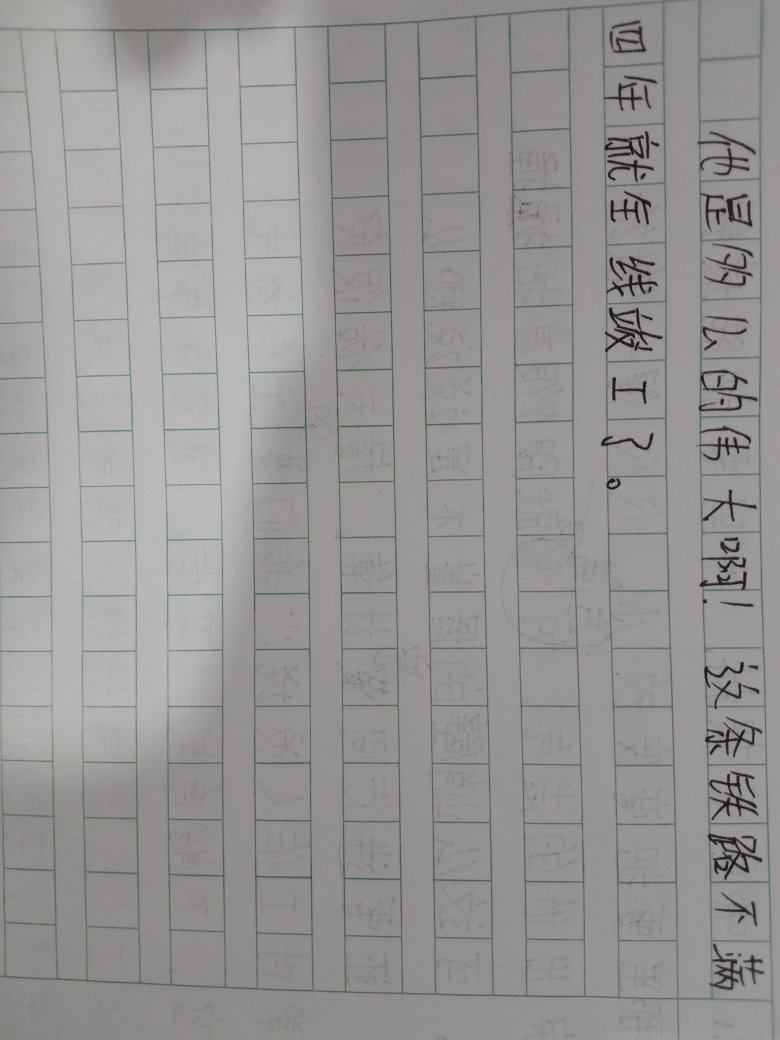 他是多么的伟大啊！这条铁路不满
四年就全线竣工了。